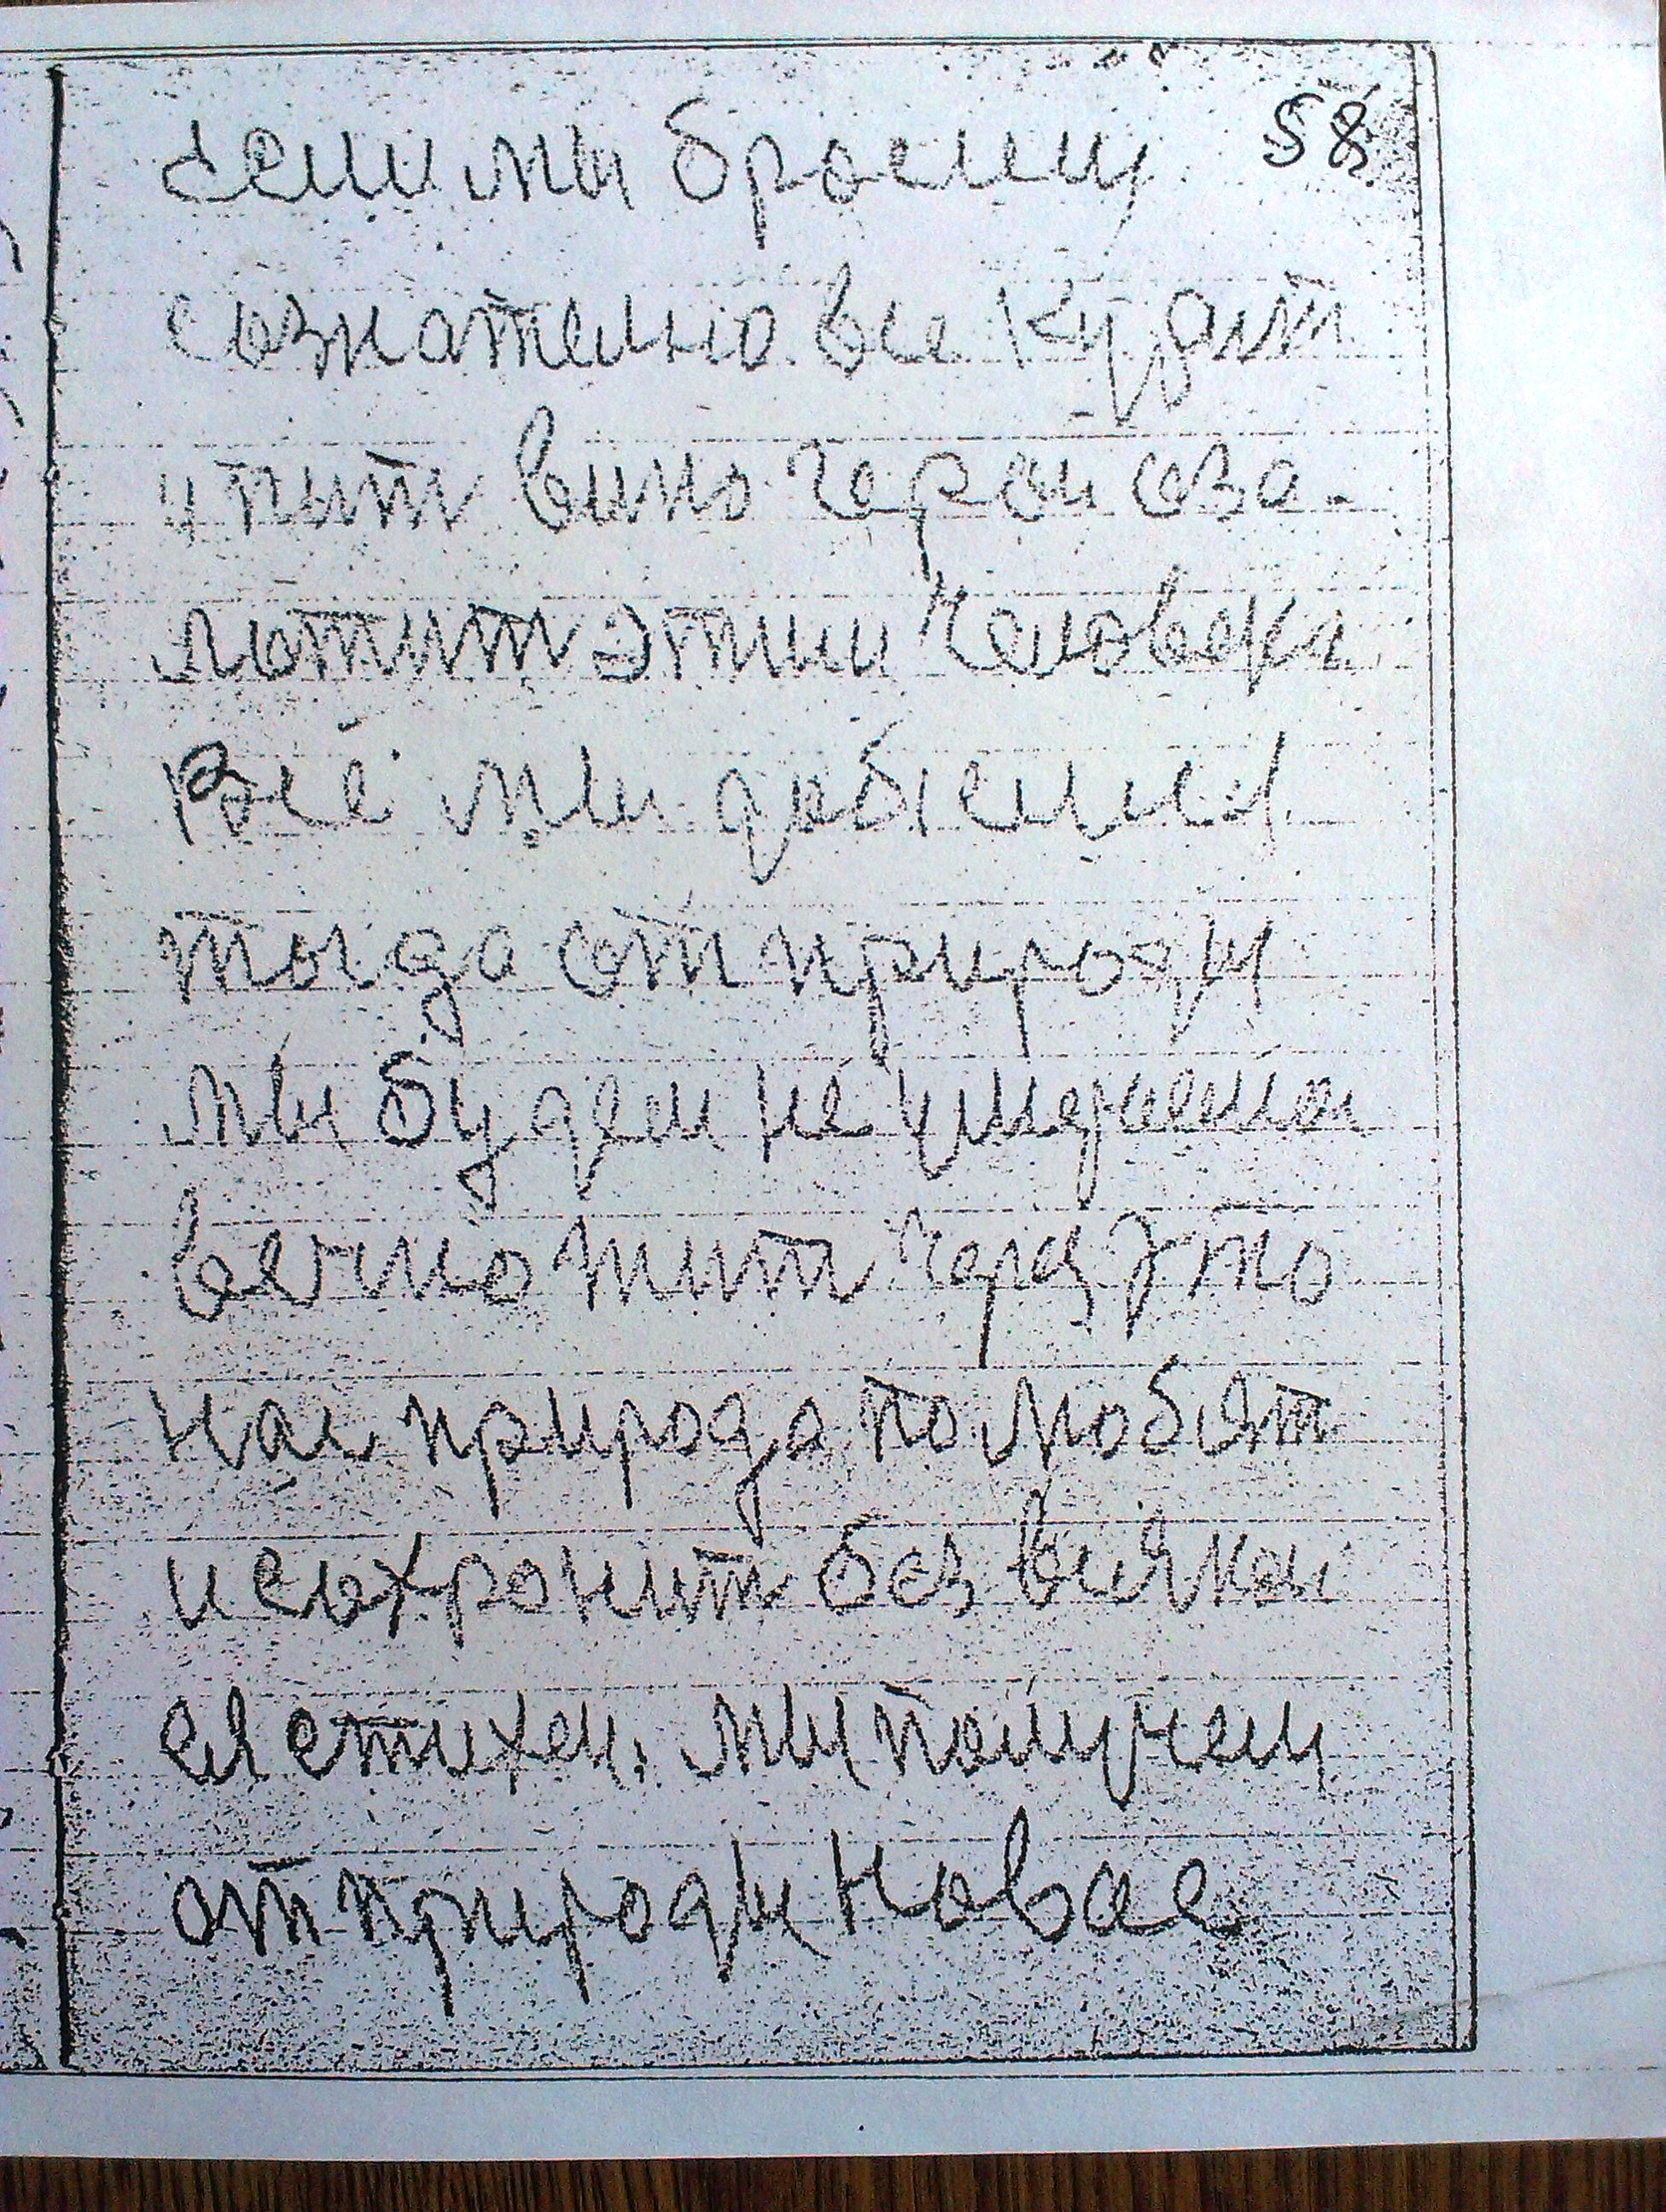 58
если мы бросим
сознателно все курит
и пит вино через сва-
лотит этим человека
Всё мы добiемся
тогда от природы
мы будем не
вечно жит через это
нас природа полюбит
и сохронит без всякои
ей стихеи. мы получем
от природы новае